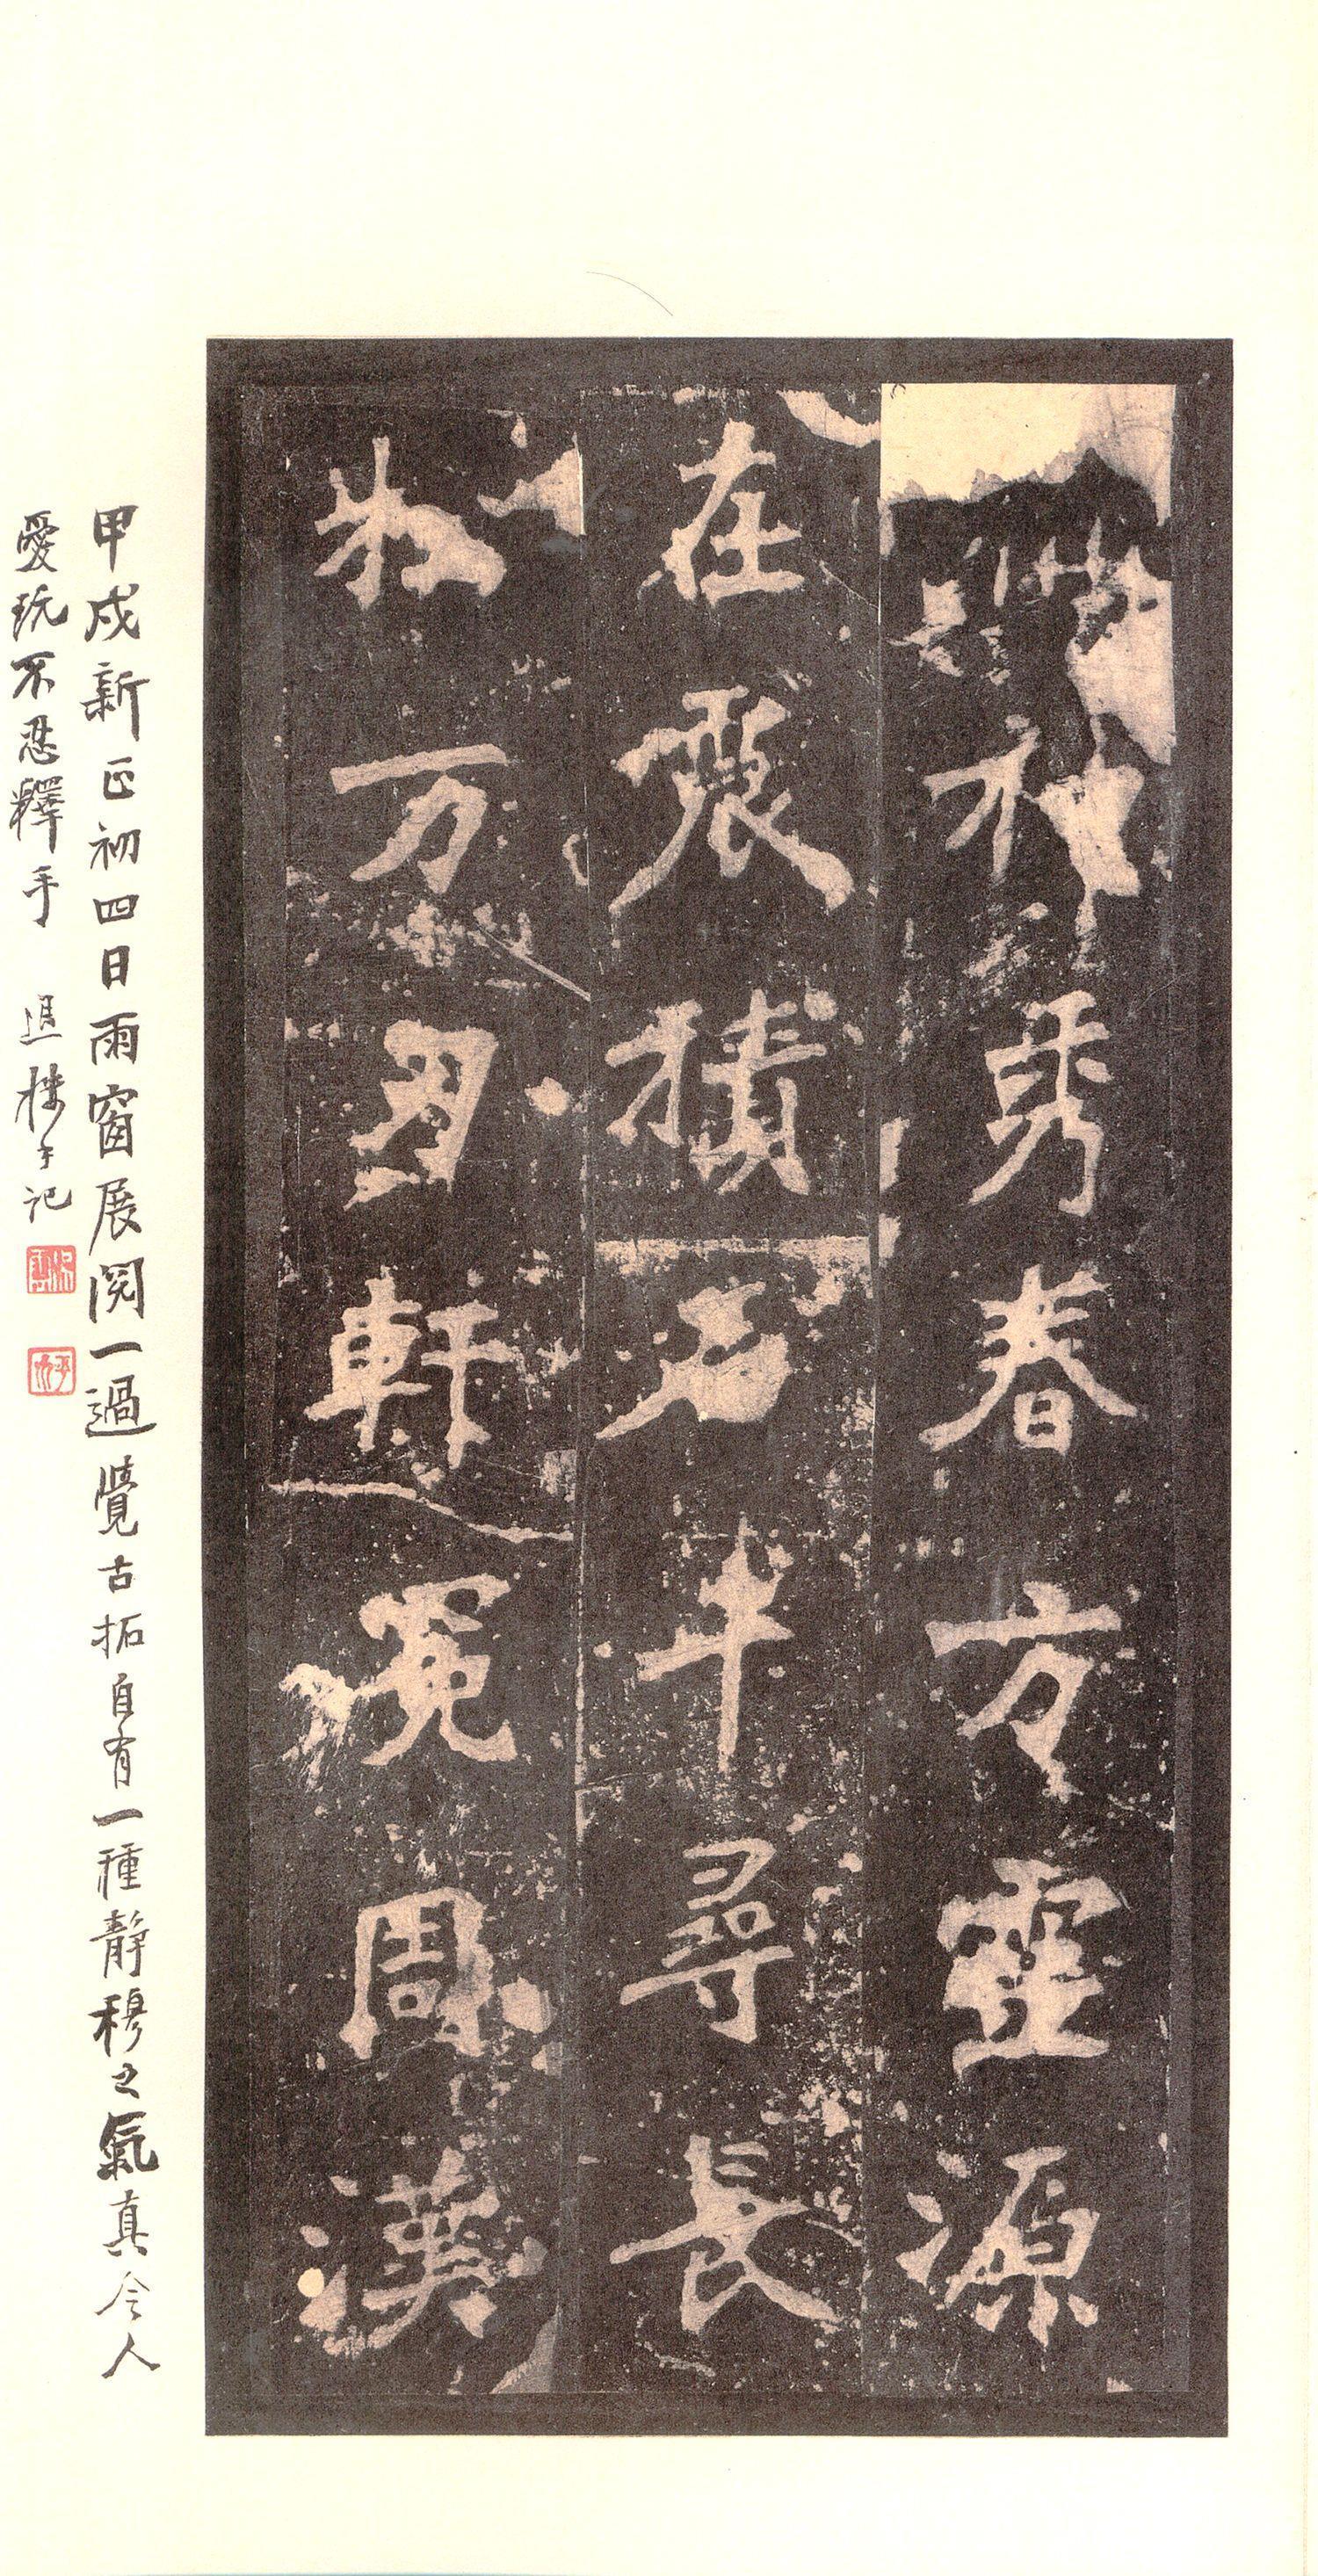 神秀春方靈源
在震積石千尋長
松万刃軒冕周漢
甲戌新正初四日雨窗展閱一過覺古拓自有一種靜穆之氣真令人
愛玩不忍釋手 退樓手記